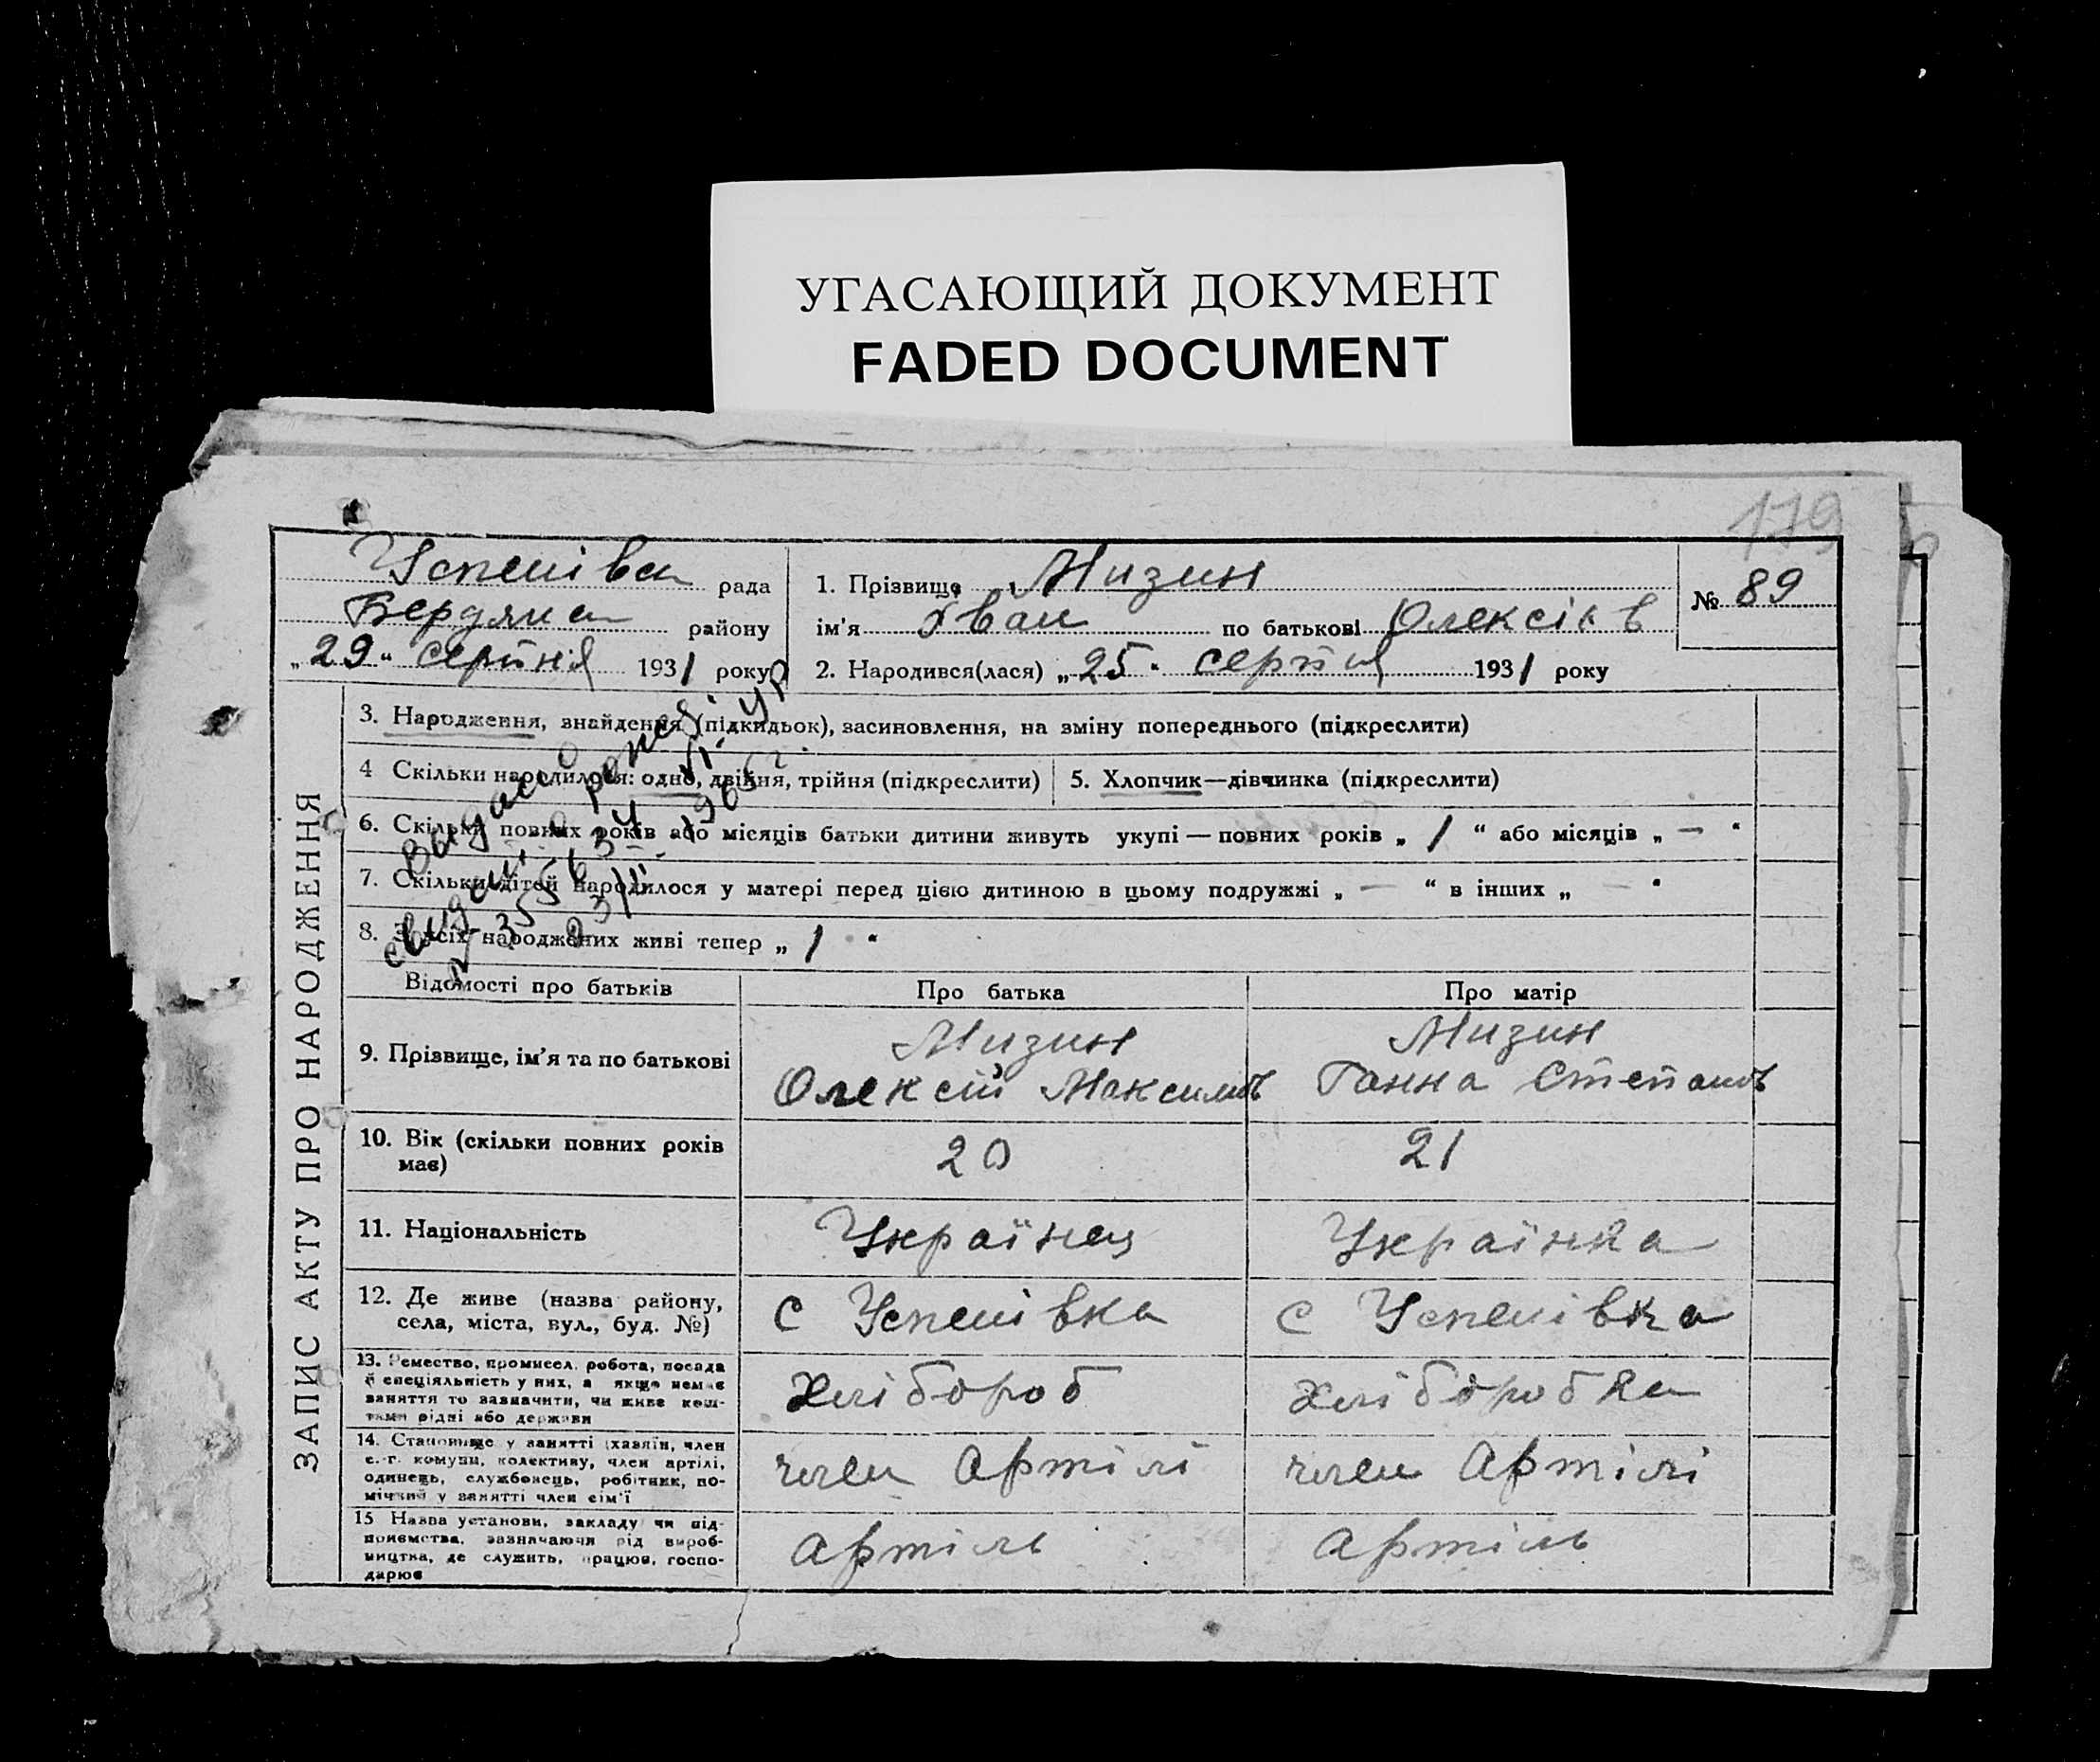 УГАСАЮЩИЙ ДОКУМЕНТ
FADED DOCUMENT
179
Успенівка рада
Бердянс району
„29“ серпня 1931 року
1. Прізвище Мизин
ім'я Іван по батькові Олексіїв
2. Народився(лася) „25“ серпня 1931 року
№ 89
ЗАПИС АКТУ ПРО НАРОДЖЕННЯ
3. Народження, знайдення (підкидьок), засиновлення, на зміну попереднього (підкреслити)
4 Скільки народилося: одно, двійня, трійня (підкреслити)
5. Хлопчик—дівчинка (підкреслити)
6. Скільки повних років або місяців батьки дитини живуть укупі — повних років „ 1 “ або місяців „ — “
7. Скільки дітей народилося у матері перед цією дитиною в цьому подружжі „ — “ в інших „ — “
8. З усіх народжених живі тепер „ 1 “
Выдано
свид
Відомості про батьків Про батька Про матір
9. Прізвище, ім'я та по батькові
Мизин
Олексій Максимов
Мизин
Ганна Степанов
10. Вік (скільки повних років
має)
20
21
11. Національність
Українец
Українка
12. Де живе (назва району,
села, міста, вул., буд. №)
с Успенівка
с Успенівка
13. Ремество, промисел, робота, посада
й спеціяльність у них, а якщо немає
заняття то зазначити, чи живе кош-
тами рідні або держави
Хлібороб
Хліборобка
14. Становище у занятті (хазяїн, член
с.-г. комуни, колективу, член артілі,
одинець, службовець, робітник, по-
мічний у занятті член сім'ї
член Артілі
член Артілі
15 Назва установи, закладу чи під-
приємства, зазначаючи рід вироб-
ництва, де служить, працює, госпо-
дарює
Артіль
Артіль